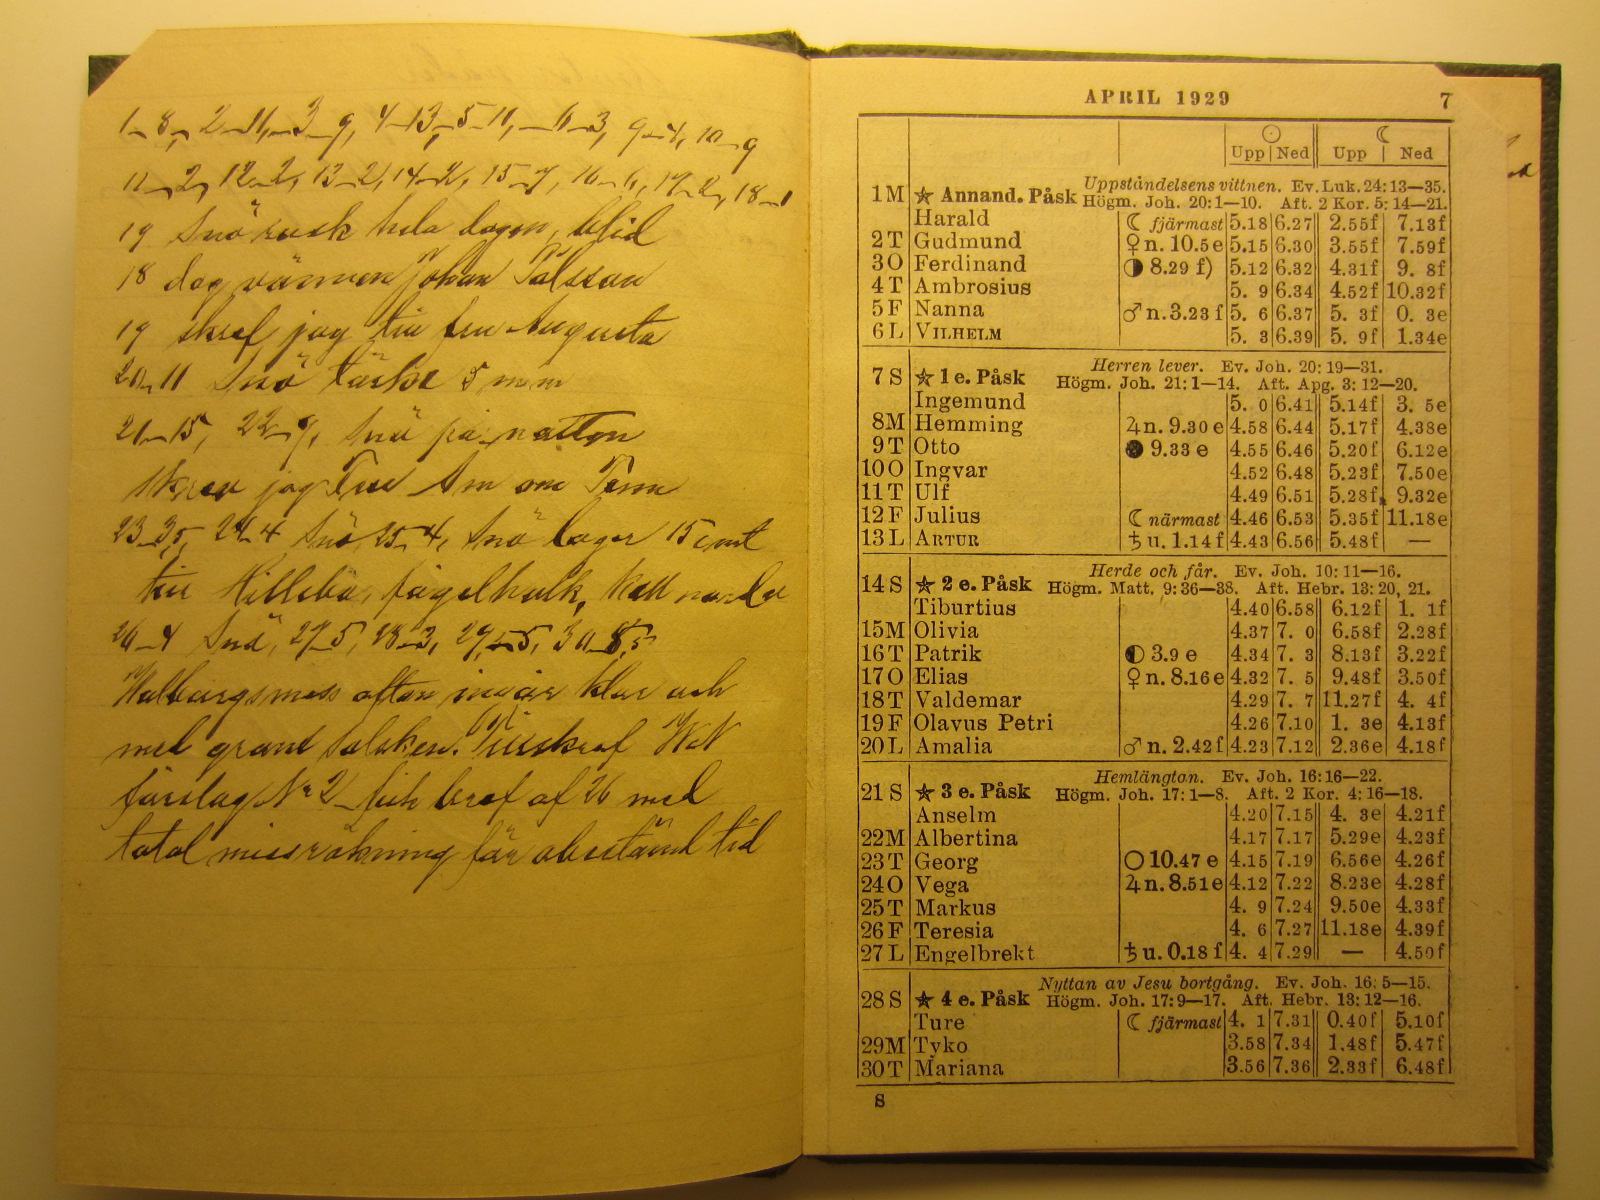 1–8, 2–11, 3–9, 4–13, 5–11, 6–3, 9–4, 10–9
11–2, 12–2, 13–2, 14–2, 15–7, 16–6, 17–2, 18–1
19 Snö rusk hela dagen, blid
18 dog vännen Johan Palsson
19 skref jag till fru Augusta
20–11 Snö täcke 5 mm
21–15, 22–9, Snö på natten
skrev jag Fru Am om
23–3,5, 24–4 Snö, 25–4, Snö lager 15 cmt
till Hilleboa, fågelhulk, Kall
26–4 Snö, 27–5, 28–3, 29–5, 30–8,5
Walborgsmess afton ingår klar och
med grant solsken. Tillskref W N
förslag Nr 2 fick bref af 26 med
total missräkning för obestämd tid
APRIL 1929 7
☉ ☾
Upp Ned Upp Ned
1 M ★ Annand. Påsk Uppståndelsens vittnen. Ev. Luk. 24: 13—35.
Högm. Joh. 20: 1—10. Aft. 2 Kor. 5: 14—21.
Harald ☾ fjärmast 5.18 6.27 2.55f 7.13f
2 T Gudmund ♀ n. 10.5 e 5.15 6.30 3.55f 7.59f
3 O Ferdinand ◑ 8.29 f) 5.12 6.32 4.31f 9. 8f
4 T Ambrosius 5. 9 6.34 4.52f 10.32f
5 F Nanna ♂ n. 3.23 f 5. 6 6.37 5. 3f 0. 3e
6 L VILHELM 5. 3 6.39 5. 9f 1.34e
7 S ★ 1 e. Påsk Herren lever. Ev. Joh. 20: 19—31.
Högm. Joh. 21: 1—14. Aft. Apg. 3: 12—20.
Ingemund 5. 0 6.41 5.14f 3. 5e
8 M Hemming ♃ n. 9.30 e 4.58 6.44 5.17f 4.38e
9 T Otto ● 9.33 e 4.55 6.46 5.20f 6.12e
10 O Ingvar 4.52 6.48 5.23f 7.50e
11 T Ulf 4.49 6.51 5.28f 9.32e
12 F Julius ☾ närmast 4.46 6.53 5.35f 11.18e
13 L ARTUR ♄ u. 1.14 f 4.43 6.56 5.48f —
14 S ★ 2 e. Påsk Herde och får. Ev. Joh. 10: 11—16.
Högm. Matt. 9: 36—38. Aft. Hebr. 13: 20, 21.
Tiburtius 4.40 6.58 6.12f 1. 1f
15 M Olivia 4.37 7. 0 6.58f 2.28f
16 T Patrik ◐ 3.9 e 4.34 7. 3 8.13f 3.22f
17 O Elias ♀ n. 8.16 e 4.32 7. 5 9.48f 3.50f
18 T Valdemar 4.29 7. 7 11.27f 4. 4f
19 F Olavus Petri 4.26 7.10 1. 3e 4.13f
20 L Amalia ♂ n. 2.42 f 4.23 7.12 2.36e 4.18f
21 S ★ 3 e. Påsk Hemlängtan. Ev. Joh. 16: 16—22.
Högm. Joh. 17: 1—8. Aft. 2 Kor. 4: 16—18.
Anselm 4.20 7.15 4. 3e 4.21f
22 M Albertina 4.17 7.17 5.29e 4.23f
23 T Georg ○ 10.47 e 4.15 7.19 6.56e 4.26f
24 O Vega ♃ n. 8.51 e 4.12 7.22 8.23e 4.28f
25 T Markus 4. 9 7.24 9.50e 4.33f
26 F Teresia 4. 6 7.27 11.18e 4.39f
27 L Engelbrekt ♄ u. 0.18 f 4. 4 7.29 — 4.50f
28 S ★ 4 e. Påsk Nyttan av Jesu bortgång. Ev. Joh. 16: 5—15.
Högm. Joh. 17: 9—17. Aft. Hebr. 13: 12—16.
Ture ☾ fjärmast 4. 1 7.31 0.40f 5.10f
29 M Tyko 3.58 7.34 1.48f 5.47f
30 T Mariana 3.56 7.36 2.33f 6.48f
S